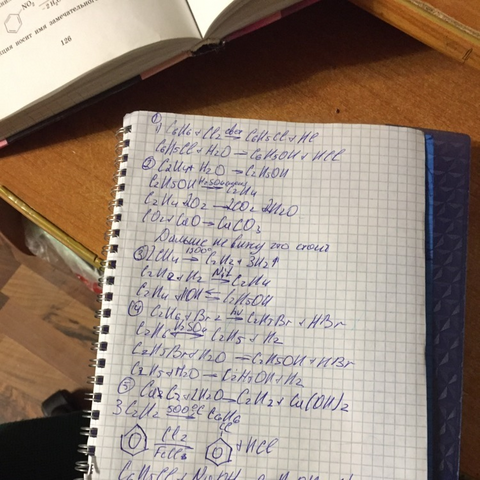 NO₂
-2H₂
ция носит имя замечательного
126
①
1) C₆H₆ + Cl₂ → C₆H₅Cl + HCl
C₆H₅Cl + H₂O → C₆H₅OH + HCl
② C₂H₄ + H₂O → C₂H₅OH
C₂H₅OH H₂SO₄ → C₂H₄
C₂H₄ 3O₂ → 2CO₂ 2H₂O
CO₂ + CaO → CaCO₃
Дальше не вижу что стоит
③ 2CH₄ 1500° → C₂H₂ + 3H₂↑
C₂H₂ + H₂ Ni t → C₂H₄
C₂H₄ + HOH ⇄ C₂H₅OH
④ C₂H₆ + Br₂ hν → C₂H₅Br + HBr
C₂H₆ H₂SO₄ → C₂H₅ + H₂
C₂H₅Br + H₂O → C₂H₅OH + HBr
C₂H₅ + H₂O → C₂H₅OH + H₂
⑤ CaC₂ + 2H₂O → C₂H₂ + Ca(OH)₂
3C₂H₂ 500°C → C₆H₆
Cl₂ Cl
FeCl₃ + HCl
C₆H₅Cl +